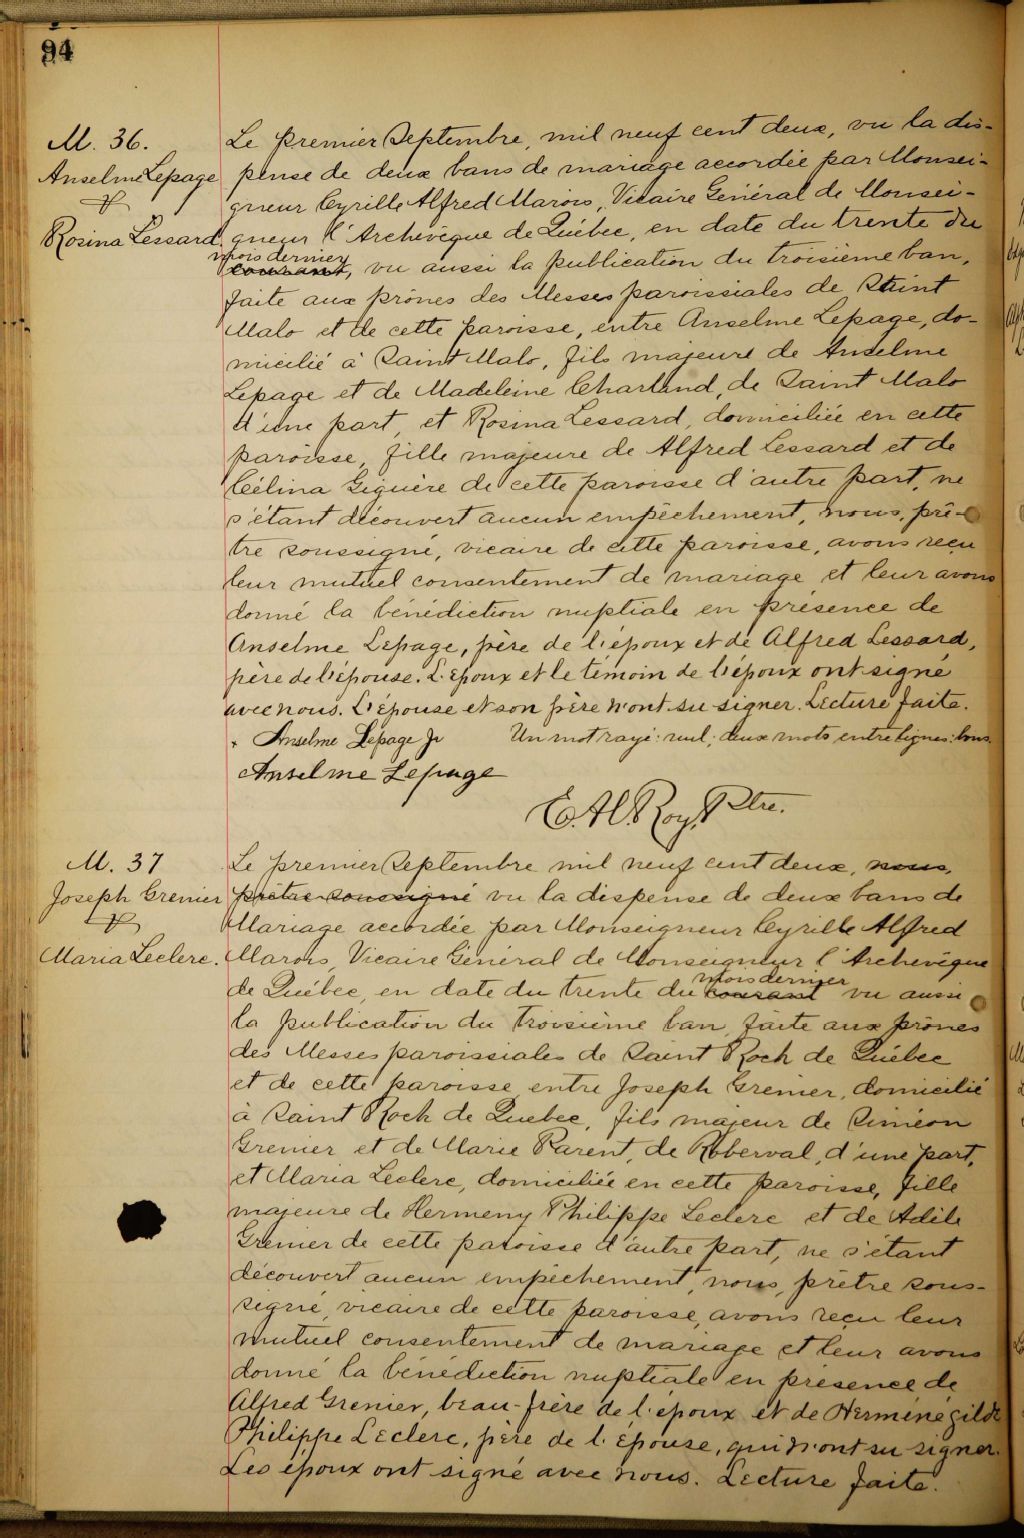 94
M. 36.
Anselme Lepage
&
Rosina Lessard.
Le premier Septembre, mil neuf cent deux, vu la dis-
pense de deux bans de mariage accordée par Monsei-
gneur Cyrille Alfred Marois, Vicaire Général de Monsei-
gneur l'Archevêque de Québec, en date du trente du
mois dernier
courant, vu aussi la publication du troisième ban,
faite aux prônes des Messes paroissiales de Saint
Malo et de cette paroisse, entre Anselme Lepage, do-
micilié à Saint Malo, fils majeure de Anselme
Lepage et de Madeleine Charland, de Saint Malo
d'une part, et Rosina Lessard, domiciliée en cette
paroisse, fille majeure de Alfred Lessard et de
Célina Giguère de cette paroisse d'autre part, ne
s'étant découvert aucun empêchement, nous, prê-
tre soussigné, vicaire de cette paroisse, avons reçu
leur mutuel consentement de mariage et leur avons
donné la bénédiction nuptiale en présence de
Anselme Lepage, père de l'époux et de Alfred Lessard,
père de l'épouse. L'époux et le témoin de l'époux ont signé
avec nous. L'épouse et son père n'ont su signer. Lecture faite.
Anselme Lepage Jr Un mot rayé: nul; deux mots entre lignes: bons.
Anselme Lepage
E. Al. Roy, Ptre.
M. 37
Joseph Grenier
&
Maria Leclerc.
Le premier Septembre mil neuf cent deux, nous,
prêtre soussigné vu la dispense de deux bans de
Mariage accordée par Monseigneur Cyrille Alfred
Marois, Vicaire Général de Monseigneur l'Archevêque
mois dernier
de Québec, en date du trente du courant vu aussi
la publication du troisième ban, faite aux prônes
des Messes paroissiales de Saint Roch de Québec
et de cette paroisse entre Joseph Grenier, domicilié
à Saint Roch de Quebec, fils majeur de Siméon
Grenier et de Marie Parent, de Roberval, d'une part,
et Maria Leclerc, domiciliée en cette paroisse, fille
majeure de Hermeny Philippe Leclerc et de Adèle
Grenier de cette paroisse d'autre part, ne s'étant
découvert aucun empêchement, nous, prêtre sous-
signé, vicaire de cette paroisse, avons reçu leur
mutuel consentement de mariage et leur avons
donné la bénédiction nuptiale en présence de
Alfred Grenier, beau-frère de l'époux et de Herménégilde
Philippe Leclerc, père de l'épouse, qui n'ont su signer.
Les époux ont signé avec nous. Lecture faite.